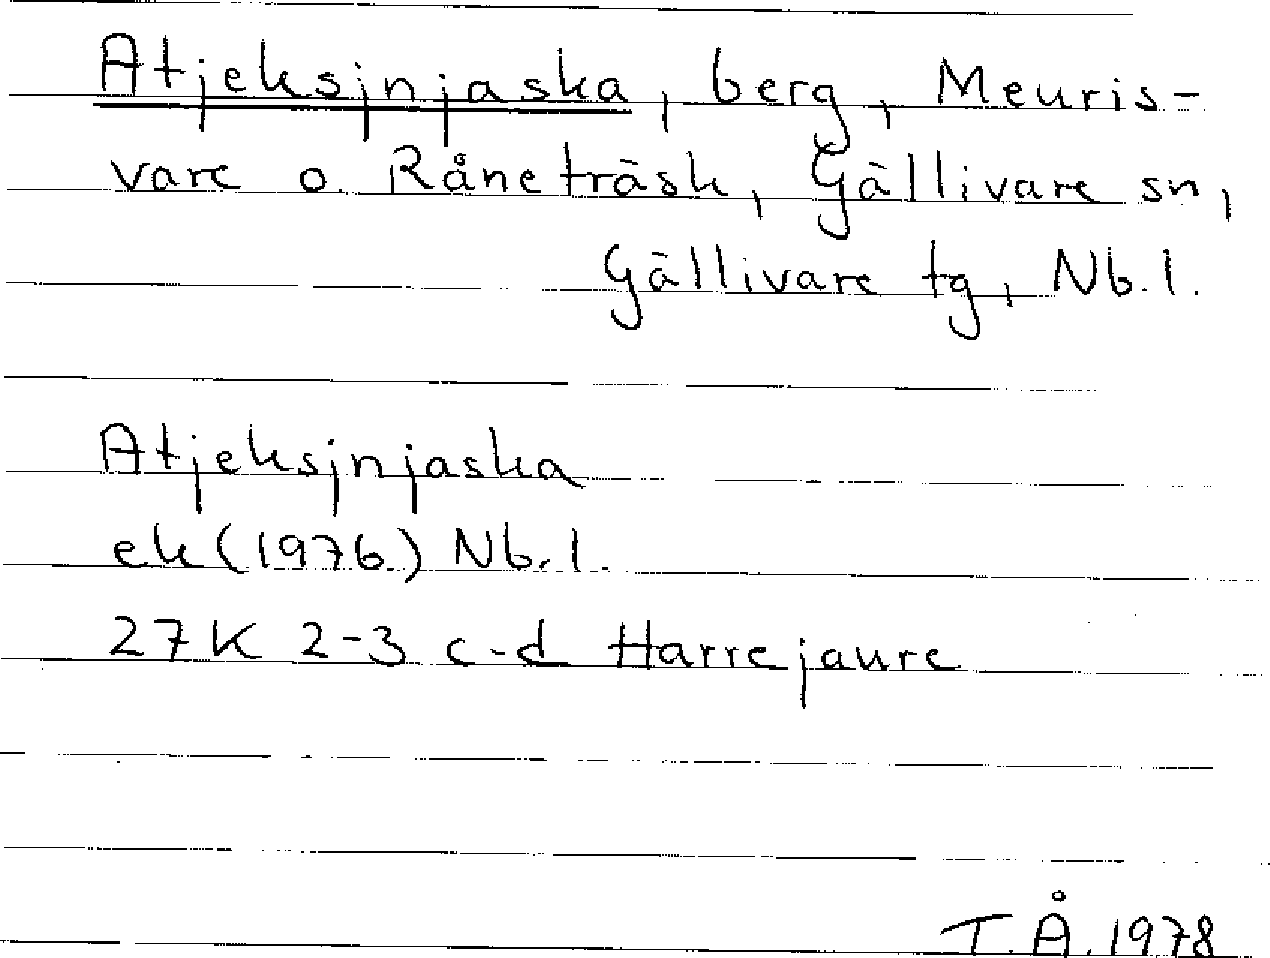 Atjeksjnjaska, berg, Meuris-
vare o. Råneträsk, Gällivare sn,
Gällivare tg, Nb. l.
Atjeksjnjaska
ek (1976) Nb. l.
27K 2-3 c-d Harrejaure
T.Å. 1978